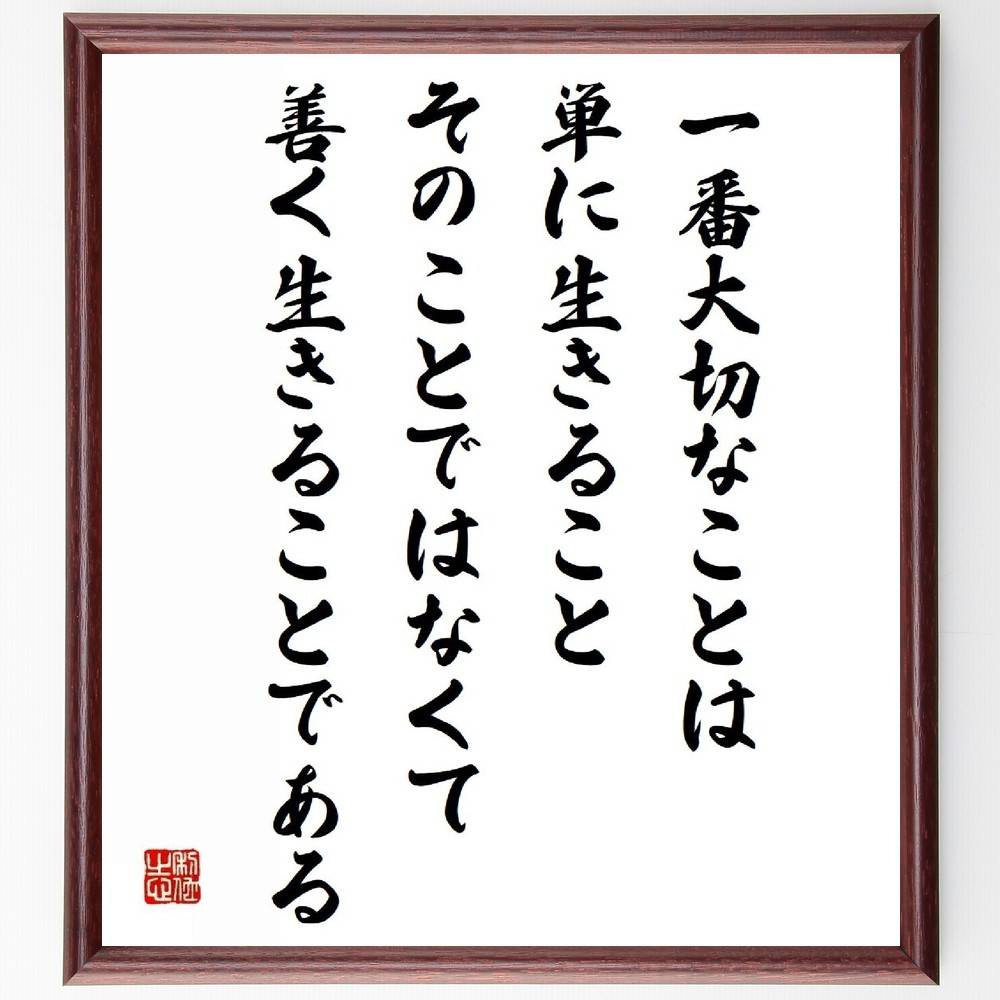 一番大切なことは
単に生きること
そのことではなくて
善く生きることである